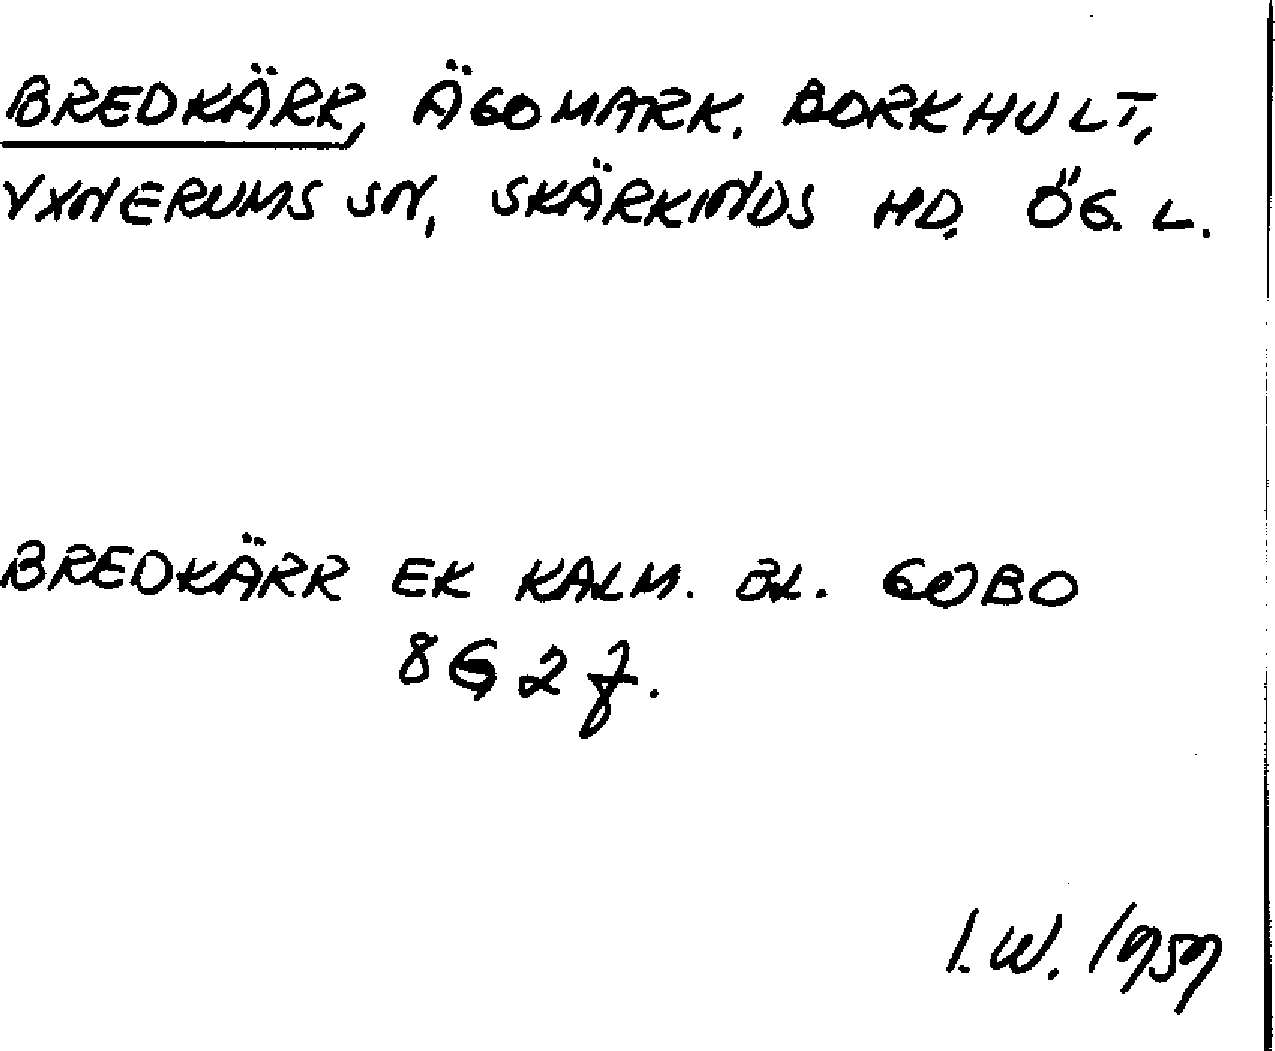 BREDKÄRR, ÄGOMARK. BORKHULT,
YXNERUMS SN, SKÄRKINDS HD. ÖG. L.
BREDKÄRR EK KALM. BL. GOBO
8G 2f.
I.W. 1959